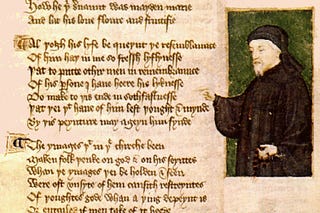 How he þi seruaunt was mayden marie
And lat his loue floure and fructifie
Al þogh his lyfe be queynt þe resemblaunce
Of him haþ in me so fressh lyflynesse
Þat to putte othir men in remembraunce
Of his persone I haue heere his lyknesse
Do make to þis ende in sothfastnesse
Þat þei þat haue of him lest þought & mynde
By þis peynture may ageyn him fynde
The ymages þt in þe chirche been
Maken folk þenke on god & on his seyntes
Whan þe ymages þei be holden & seen
Were oft vnsyte of hem causith restreyntes
Of þoughtes gode whan a þing depeynt is
Or entailed if men take of it heede